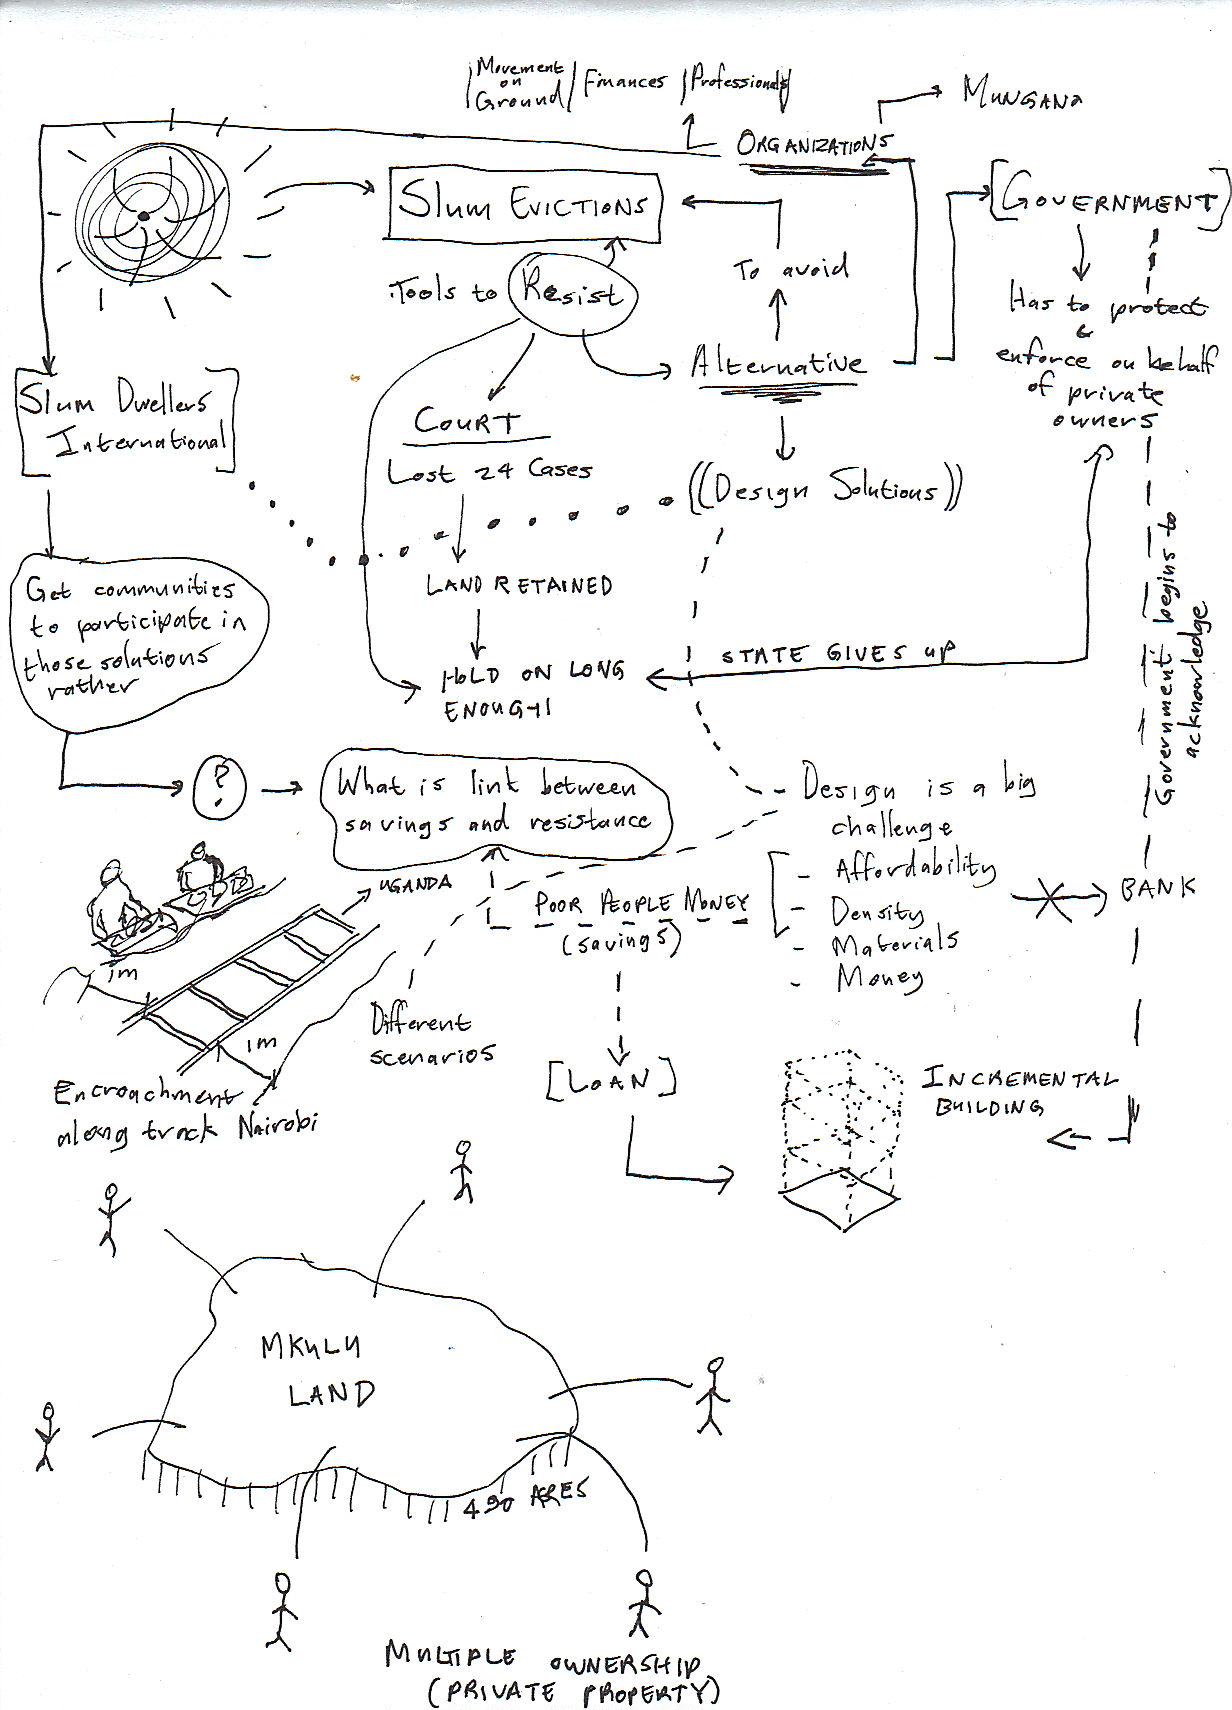 Movement
on
Ground
Finances
Professionals
ORGANIZATIONS
MUNGANO
Slum EVICTIONS
[GOVERNMENT]
Tools to Resist
To avoid
Has to protect
&
enforce on behalf
of private
owners
Alternative
Slum Dwellers
International
COURT
Lost 24 Cases
((Design Solutions))
LAND RETAINED
Get communities
to participate in
those solutions
rather
HOLD ON LONG
ENOUGH
STATE GIVES UP
Government begins to
acknowledge
?
What is link between
savings and resistance
Design is a big
challenge
- Affordability
- Density
- Materials
- Money
BANK
UGANDA
POOR PEOPLE MONEY
(savings)
1m
1m
Different
scenarios
Encroachment
along track Nairobi
[LOAN]
INCREMENTAL
BUILDING
MKULU
LAND
490 ACRES
MULTIPLE OWNERSHIP
(PRIVATE PROPERTY)